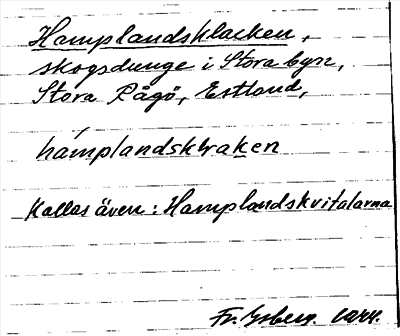 Hamplandsklacken,
skogsdunge i Stora byn,
Stora Rågö, Estland,
hámplandsklraken
Kallas även: Hamplandskvitalarna
Fr.